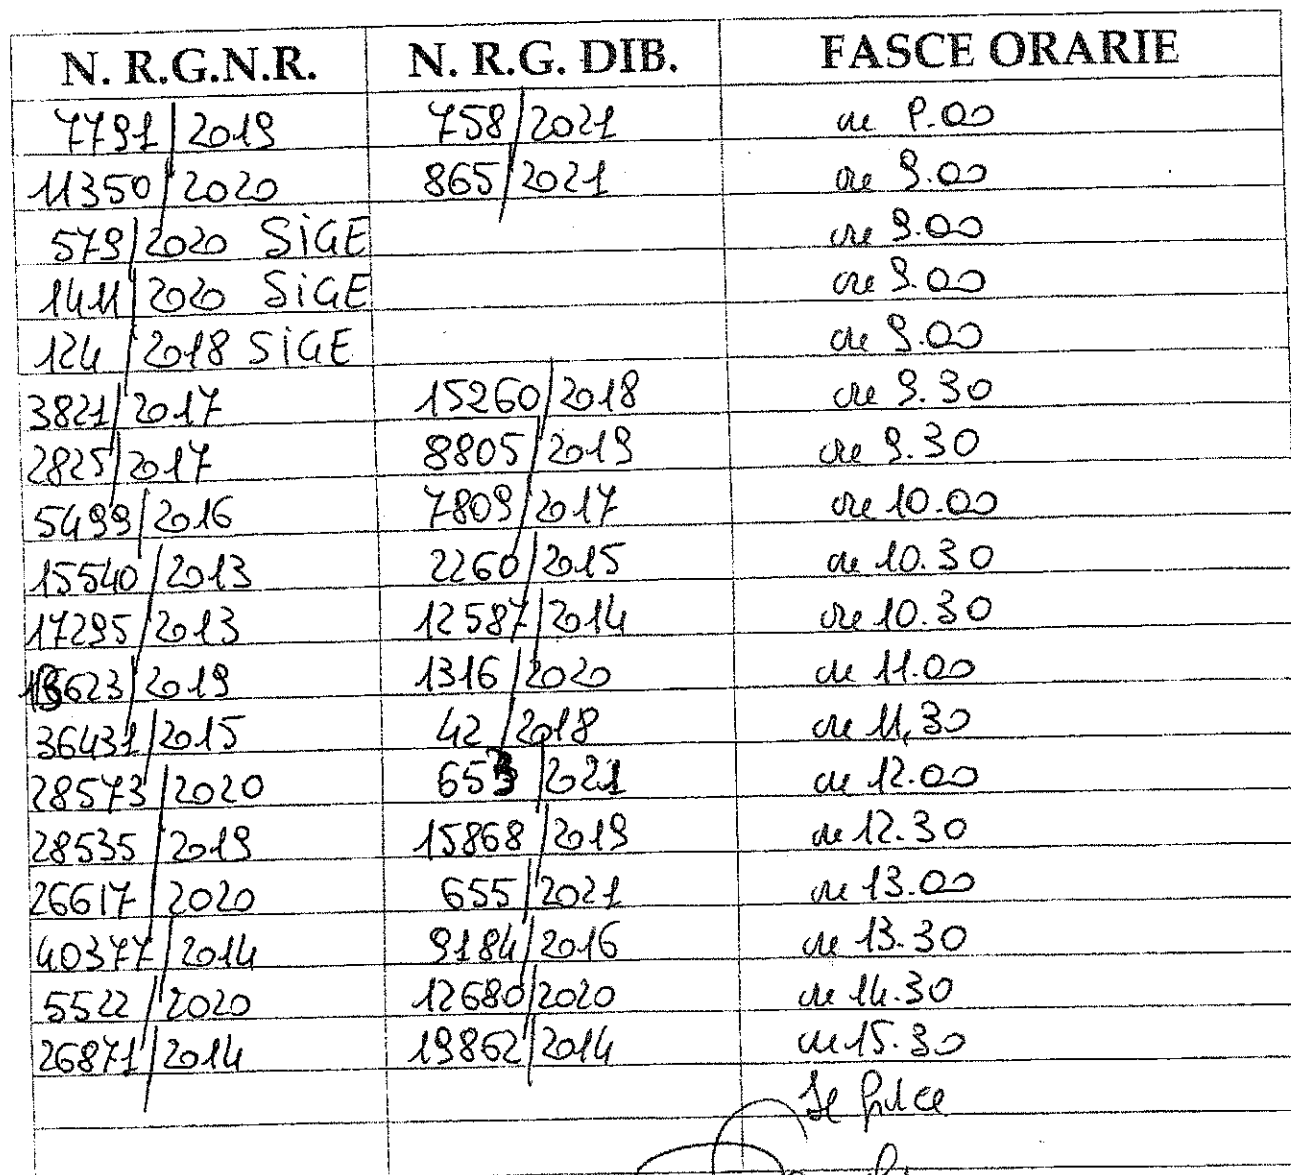 N. R.G.N.R. N. R.G. DIB. FASCE ORARIE
7791/2019 758/2021 ore 9.00
11350/2020 865/2021 ore 9.00
579/2020 SIGE ore 9.00
1411/2020 SIGE ore 9.00
124/2018 SIGE ore 9.00
3821/2017 15260/2018 ore 9.30
2825/2017 8805/2019 ore 9.30
5499/2016 7809/2017 ore 10.00
15540/2013 2260/2015 ore 10.30
17295/2013 12587/2014 ore 10.30
/2019 1316/2020 ore 11.00
36431/2015 42/2018 ore 11,30
28573/2020 653/2021 ore 12.00
28535/2019 15868/2019 ore 12.30
26617/2020 655/2021 ore 13.00
40377/2014 9184/2016 ore 13.30
5522/2020 12680/2020 ore 14.30
26871/2014 19862/2014 ore 15.30